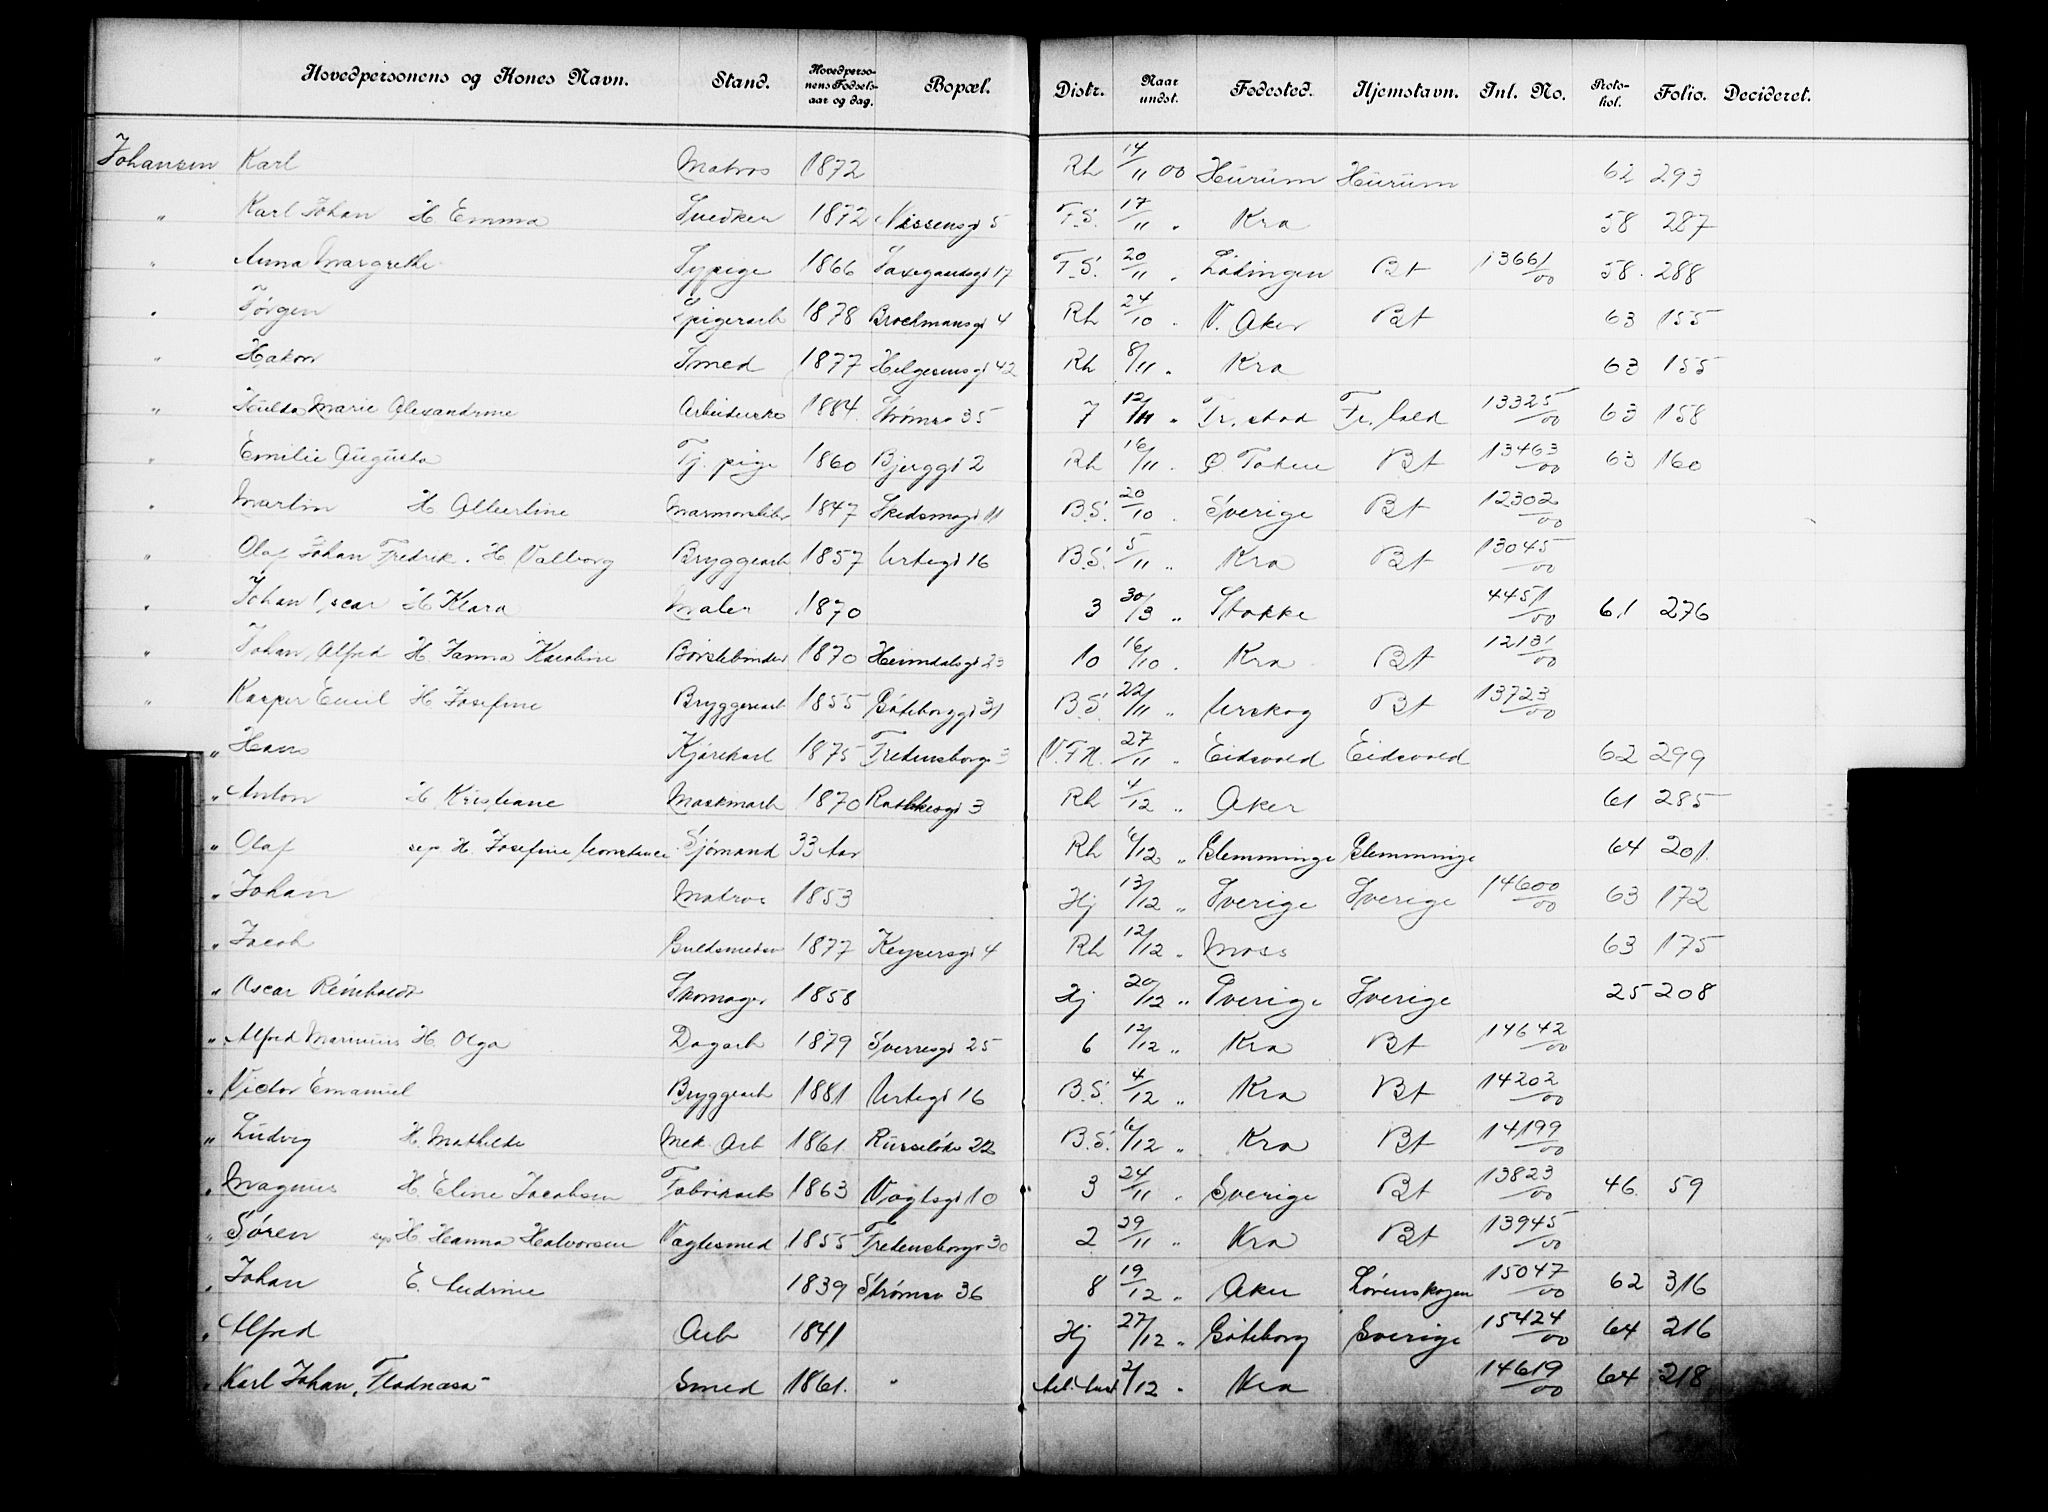 Hovedpersonens og Kones Navn. Stand. Hovedpersonens Fødselsaar og dag. Bopæl. Distr. Naar undst. Fødested. Hjemstavn. Inl. No. Protokol. Folio. Decideret.
Johansen Karl Matros 1872 Rh 14/11 00 Hurum Hurum 62 293
" Karl Johan H Emma Snedker 1872 Nissensgd 5 F.S. 17/11 " Kra 58 287
" Anna Margrethe Sypige 1866 Saxegaardsgd 17 F.S. 20/11 " Lödingen Bt 13661/00 58. 288
" Jørgen Spigerarb 1878 Brochmansgd 4 Rh 24/10 " V. Aker Bt 63 155
" Hakon Smed 1877 Helgesensgd 42 Rh 8/11 " Kra 63 155
" Hulda Marie Alexandrine Arbeiderske 1884. Strømsv 35 7 12/11 " Fr.stad Fr.hald 13325/00 63 158
" Emilie Augusta Tj. pige 1860 Bjerggd 2 Rh 16/11 " Ø. Toten Bt 13463/00 63 160
" Martin H Albertine Marmorsliber 1847 Skedsmogd 11 B.S. 20/10 " Sverige Bt 12302/00
" Olaf Johan Fredrik. H. Valborg Bryggearb 1857 Urtegd 16 B.S. 5/11 " Kra Bt 13045/00
" Johan Oscar H Klara Maler 1870 3 30/3 " Stokke 4451/00 61 276
" Johan Alfred H Janna Karoline Børstebinder 1870 Heimdalsgd 23 10 16/10 " Kra Bt 12131/00
" Kasper Emil H Josefine Bryggerarb 1855 Göteborggd 31 B.S. 22/11 " Urskog Bt 13723/00
" Hans Kjørekarl 1875 Fredensborgv 3 V.F.N. 27/11 " Eidsvold Eidsvold 62 299
" Anton H Kristiane Maskinarb 1870 Rathkesgd 3 Rh 4/12 " Aker 61 285
" Olaf sep H. Josefine Constance Sjømand 33 Aar Rh 6/12 " Glemminge Glemminge 64 201.
" Johan Matros 1853 Hj 13/12 " Sverige Sverige 14600/00 63 172
" Jacob Guldsmedsv 1877 Keysersgd 4 Rh 12/12 " Moss 63 175
" Oscar Reinholdt Skomager 1858 Hj 20/12 " Sverige Sverige 25 208
" Alfred Marinius H. Olga Dagarb 1879 Sverresgd 25 6 12/12 " Kra Bt 14642/00
" Victor Emanuel Bryggearb 1881 Urtegd 16 B.S. 4/12 " Kra Bt 14202/00
" Ludvig H. Mathilde Mek. Arb 1861. Ruseløkv 22 B.S. 6/12 " Kra Bt 14199/00
" Magnus H. Eline Jacobsen Fabrikarb 1863 Vogtsgd 10 3 24/11 " Sverige Bt 13823/00 46. 59
" Søren sep H. Hanna Halvorsen Vægtesmed 1855 Fredensborgv 30 2 29/11 " Kra Bt 13945/00
" Johan E. Andrine 1839 Strømsv 36 8 19/12 " Aker Lørenskogen 15047/00 62 316
" Alfred Arb 1841 Hj 27/12 " Göteborg Sverige 15424/00 64 216
" Karl Johan, Smed 1861. " 2/12 " Kra 14619/00 64 218